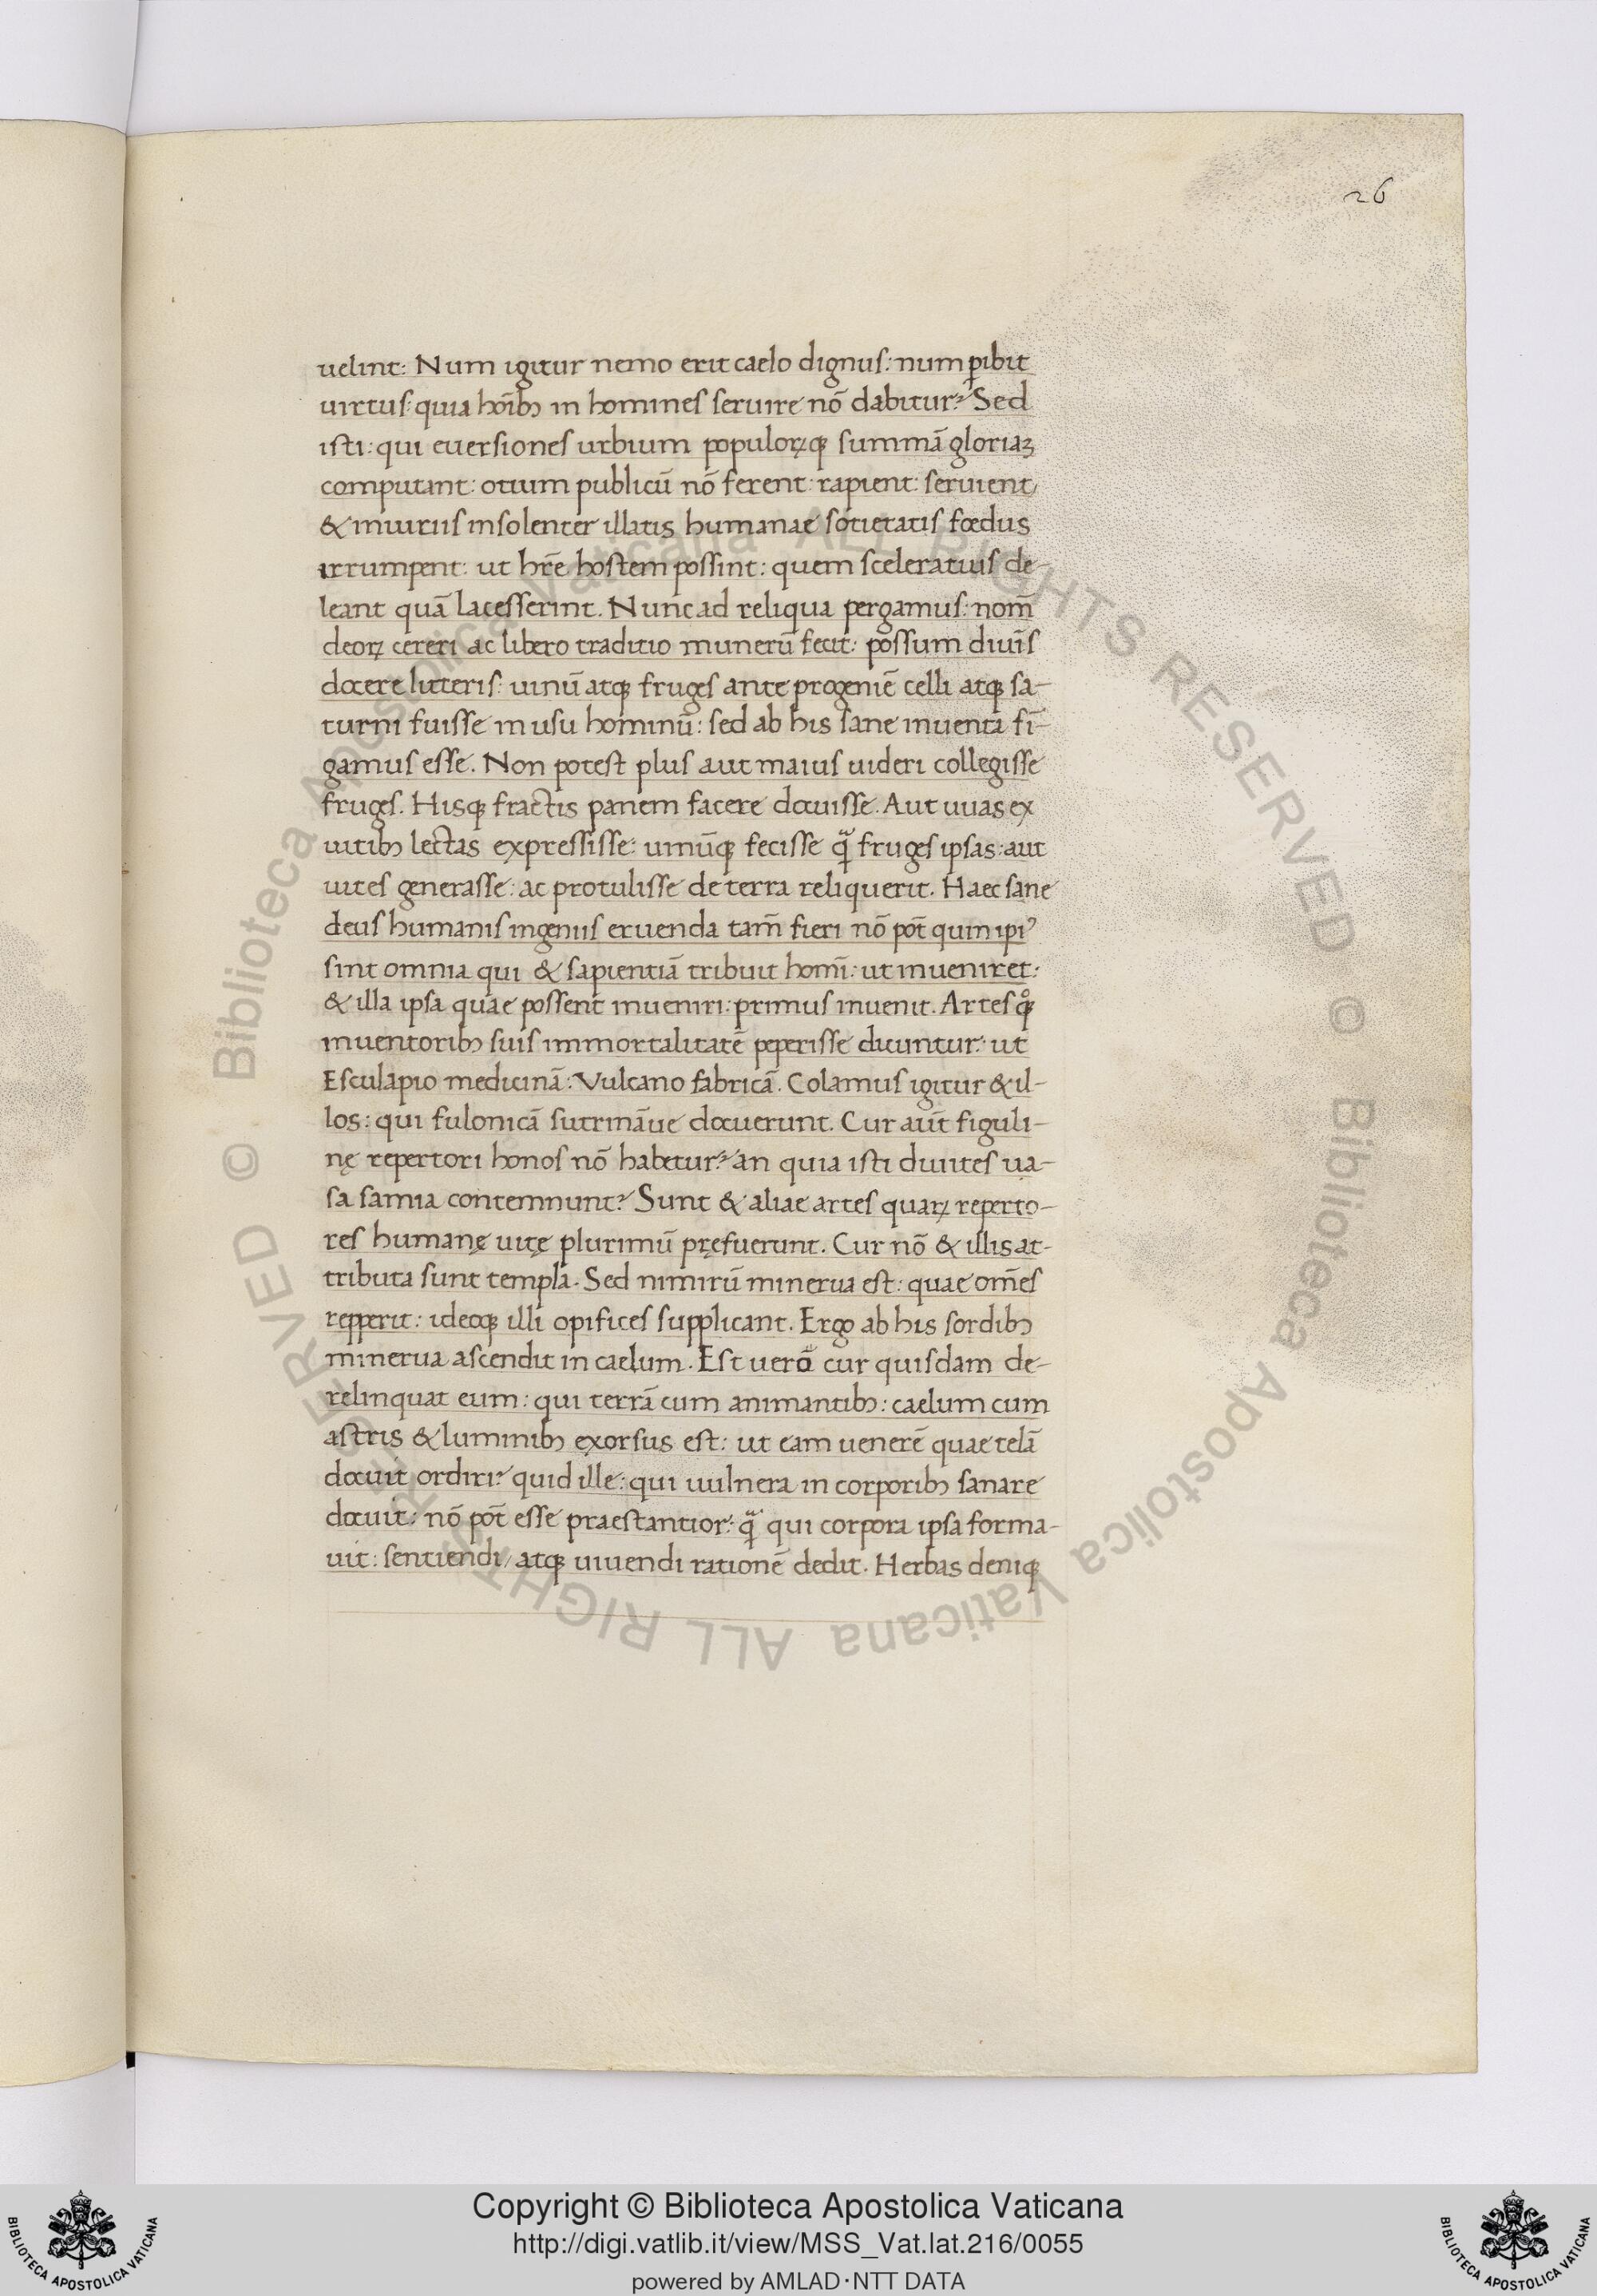 26
uelint: Num igitur nemo erit caelo dignus: num ꝑibit
uirtus: quia hoĩbꝫ in homines seruire nõ dabitur? Sed
isti: qui euersiones urbium populoꝝqꝫ summã gloriaꝫ
computant: otium publicũ nõ ferent: rapient: seruient,
& iniuriis insolenter illatis humanae sotietatis fœdus
irrumpent: ut hr̃e hostem possint: quem sceleratius de-
leant quã lacesserint. Nunc ad reliqua pergamus: nom̃
deoꝝ cereri ac libero traditio munerũ fecit: possum diuĩs
docere litteris: uinũ atqꝫ fruges ante progeniẽ celli atqꝫ sa-
turni fuisse in usu hominũ: sed ab his sane inuenta fĩ-
gamus esse. Non potest plus aut maius uideri collegisse
fruges. Hisqꝫ fractis panem facere docuisse. Aut uuas ex
uitibꝫ lectas expressisse: uinũqꝫ fecisse qᷓ fruges ipsas: aut
uites generasse: ac protulisse de terra reliquerit. Haec sane
deus humanis ingeniis eruenda tam̃ fieri nõ pot̃ quin ipiꝰ
sint omnia qui & sapientiã tribuit homĩ: ut inueniret:
& illa ipsa quae possent inueniri: primus inuenit. Artes qͦꝫ
inuentoribꝫ suis immortalitatẽ peperisse dicuntur: ut
Esculapio medicinã: Vulcano fabricã. Colamus igitur & il-
los: qui fulonicã sutrinãue docuerunt. Cur aut̃ figuli-
nę repertori honos nõ habetur? an quia isti diuites ua-
sa samia contemnunt? Sunt & aliae artes quaꝝ reperto-
res humanę uitę plurimũ pręfuerunt. Cur nõ & illis at-
tributa sunt templa. Sed nimirũ minerua est: quae om̃es
repperit: ideoqꝫ illi opifices supplicant. Ergo ab his sordibꝫ
minerua ascendit in caelum. Est uerõ cur quisdam de-
relinquat eum: qui terrã cum animantibꝫ: caelum cum
astris & luminibꝫ exorsus est: ut eam uenerẽ quae telã
docuit ordiri? quid ille: qui uulnera in corporibꝫ sanare
docuit: nõ pot̃ esse praestantior: qᷓ qui corpora ipsa forma-
uit: sentiendi, atqꝫ uiuendi rationẽ dedit. Herbas deniqꝫ
© Biblioteca Apostolica Vaticana ALL RIGHTS RESERVED © Biblioteca Apostolica Vaticana ALL RIGHTS RESERVED
Copyright © Biblioteca Apostolica Vaticana
http://digi.vatlib.it/view/MSS_Vat.lat.216/0055
powered by AMLAD·NTT DATA
BIBLIOTECA APOSTOLICA VATICANA
BIBLIOTECA APOSTOLICA VATICANA